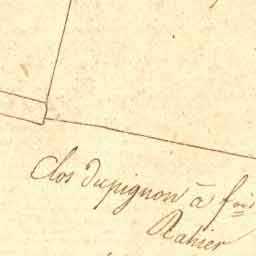 Clos dupignon à fois
Rahier